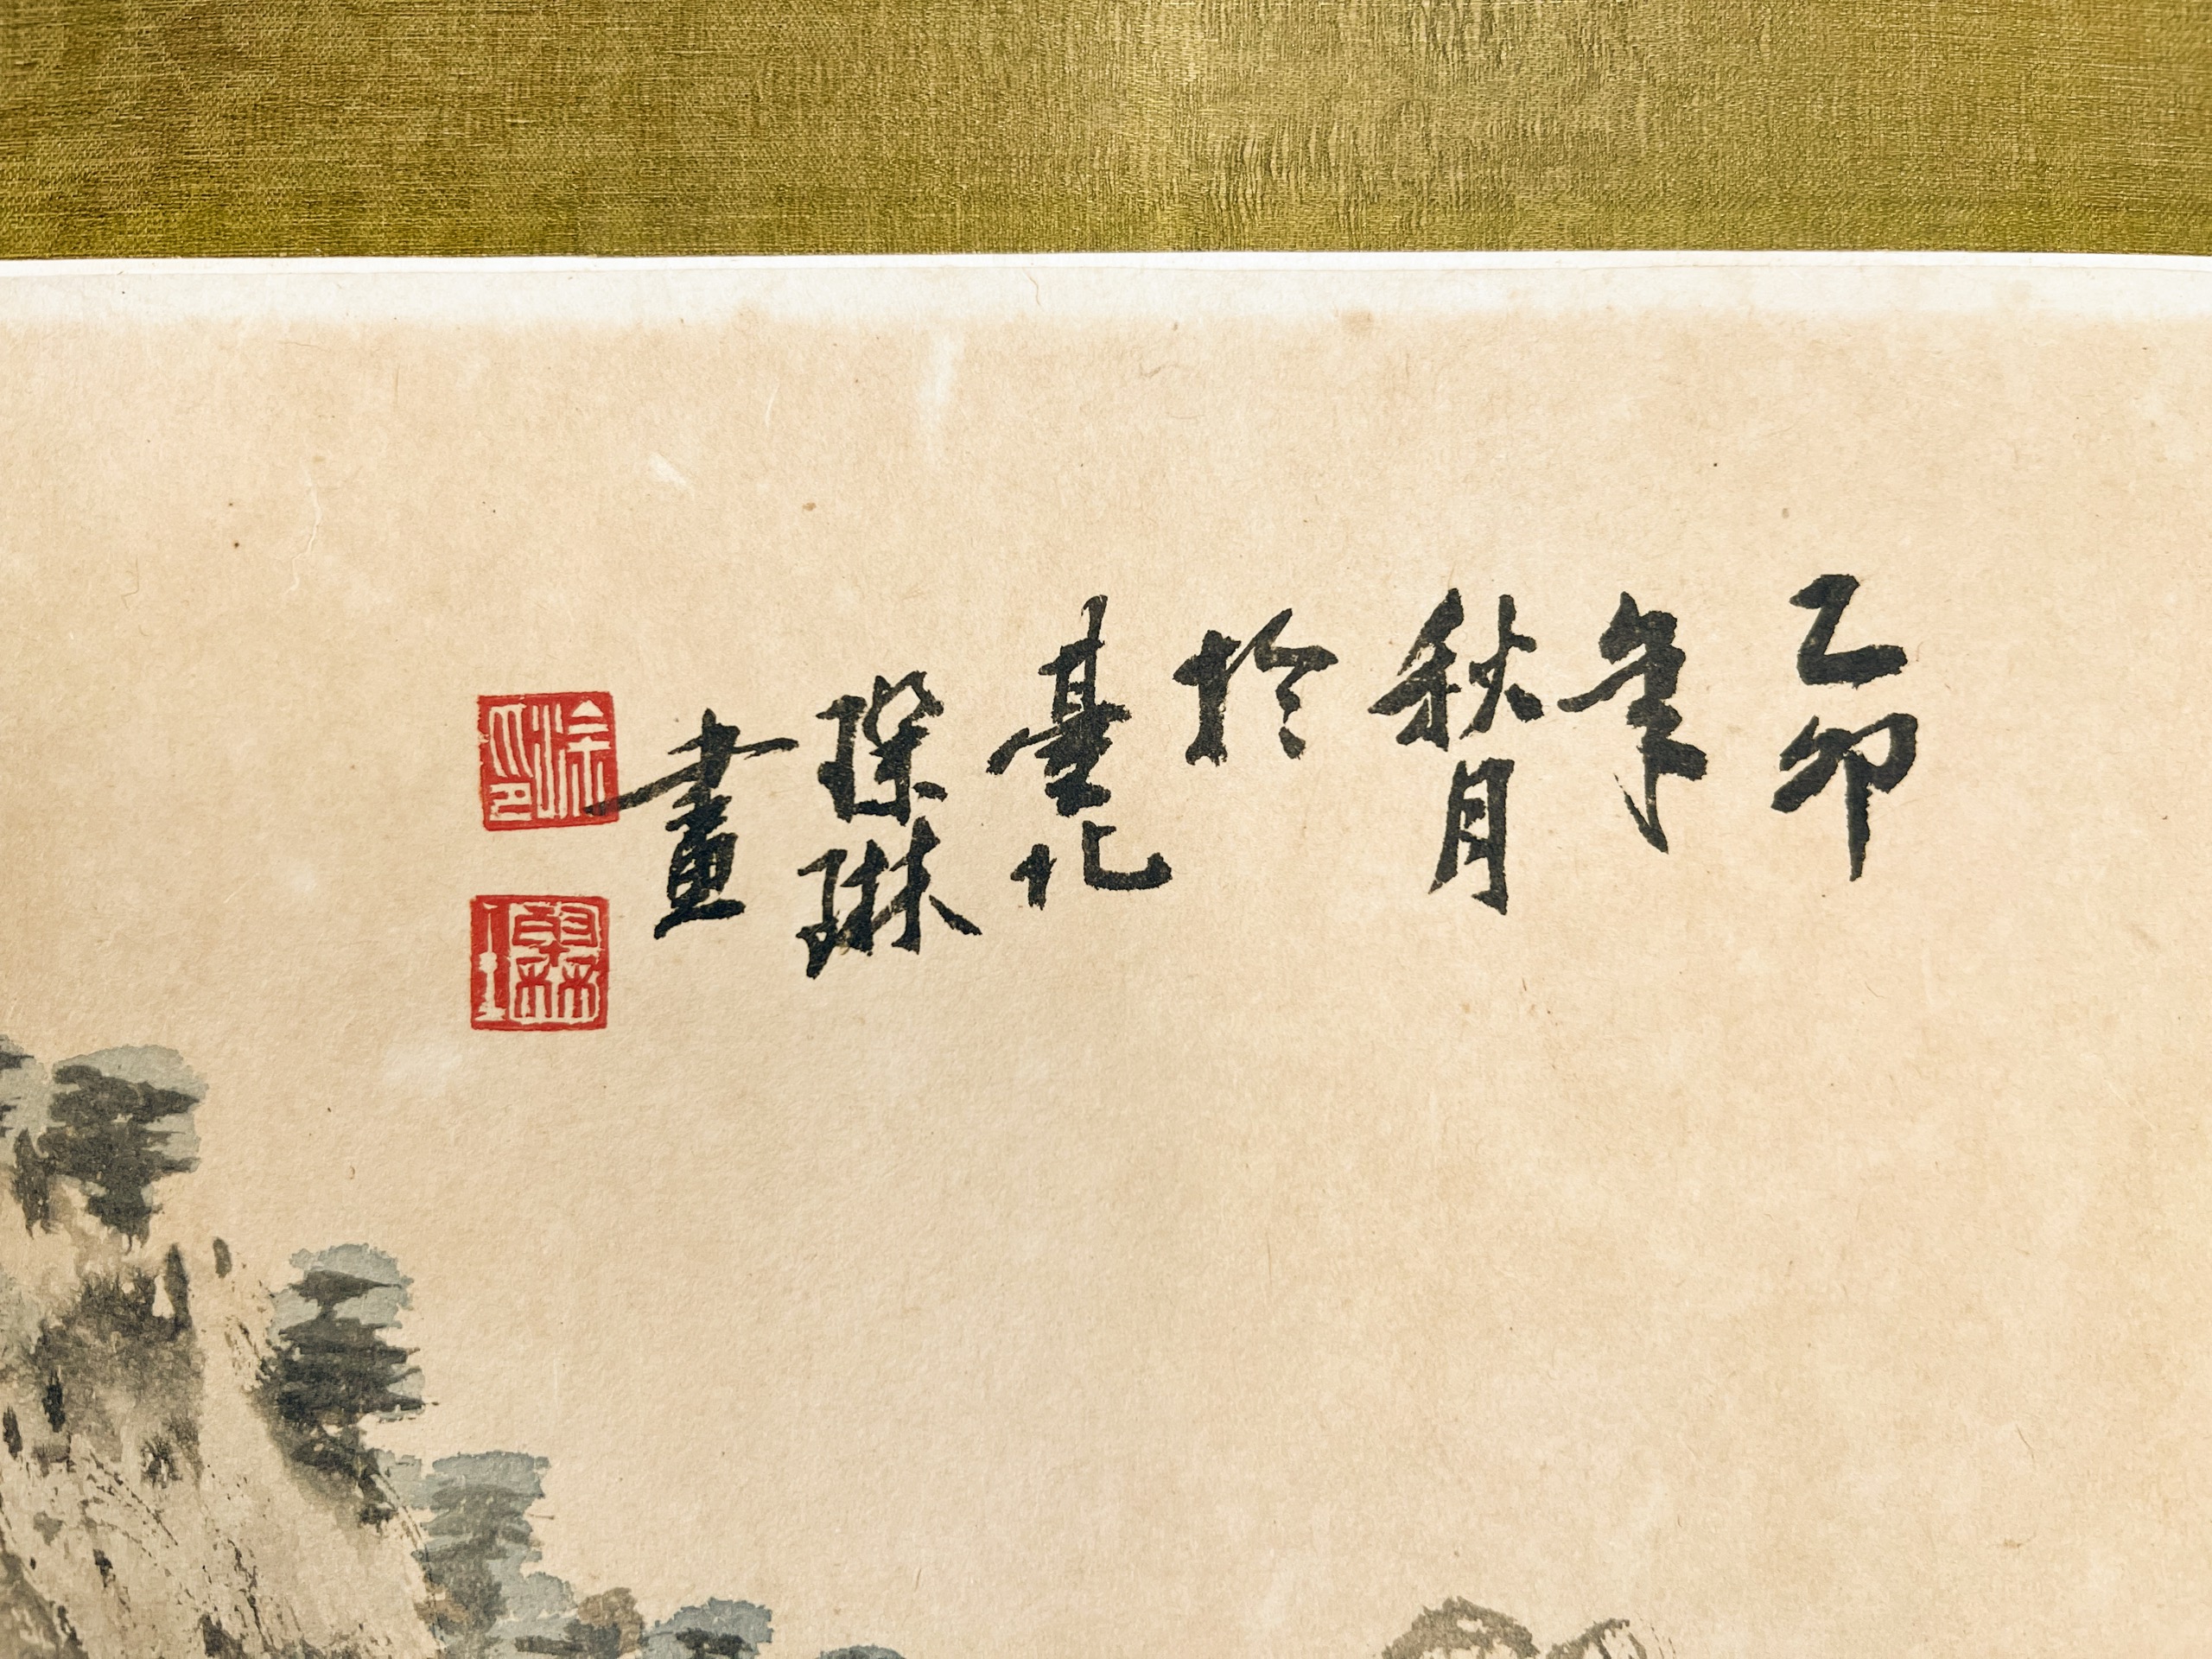 乙卯
年
秋月
於
臺北
琛琳
畫